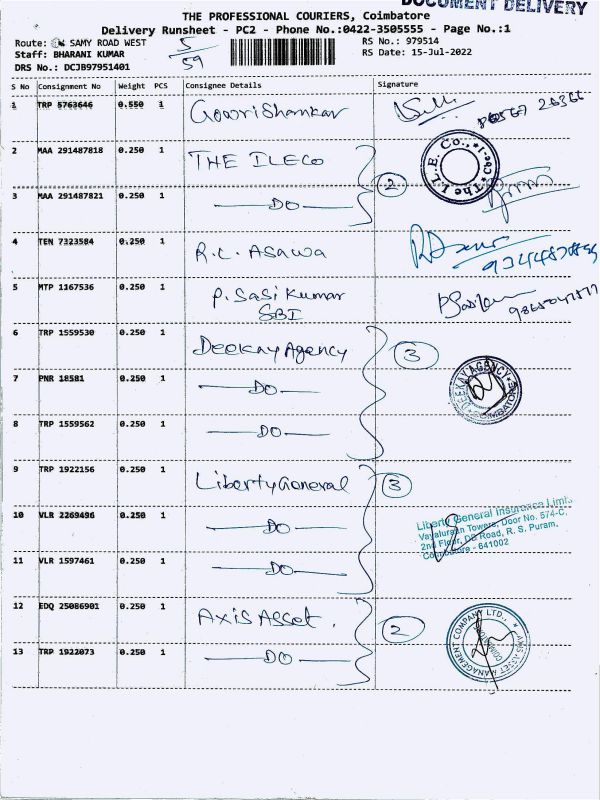 DOCUMENT DELIVERY
THE PROFESSIONAL COURIERS, Coimbatore
Delivery Runsheet - PC2 - Phone No.:0422-3505555 - Page No.:1
Route: SAMY ROAD WEST
Staff: BHARANI KUMAR
DRS No.: DCJB97951401
5/59
RS No.: 979514
RS Date: 15-Jul-2022
S No Consignment No Weight PCS Consignee Details Signature
1 TRP 5763646 0.550 1 GowriShankar
2 MAA 291487818 0.250 1 THE ILECo
3 MAA 291487821 0.250 1 —DO— 2
The I.L.E. Co., Cbe-1
4 TEN 7323584 0.250 1 R.C. Asawa
5 MTP 1167536 0.250 1 P. Sasi Kumar
SBI
6 TRP 1559530 0.250 1 Deekay Agency 3
7 PNR 18581 0.250 1 —DO—
DEEKAY AGENCY COIMBATORE
8 TRP 1559562 0.250 1 —DO—
9 TRP 1922156 0.250 1 Liberty General 3
10 VLR 2269496 0.250 1 —DO—
Liberty General Insurance Limi
Towers, Door No. 574-C,
2nd Floor, DB Road, R. S. Puram,
Coimbatore - 641002
11 VLR 1597461 0.250 1 —DO—
12 EDQ 25086901 0.250 1 Axis Asset. 2
AXIS ASSET MANAGEMENT COMPANY LTD.,
13 TRP 1922073 0.250 1 —DO—